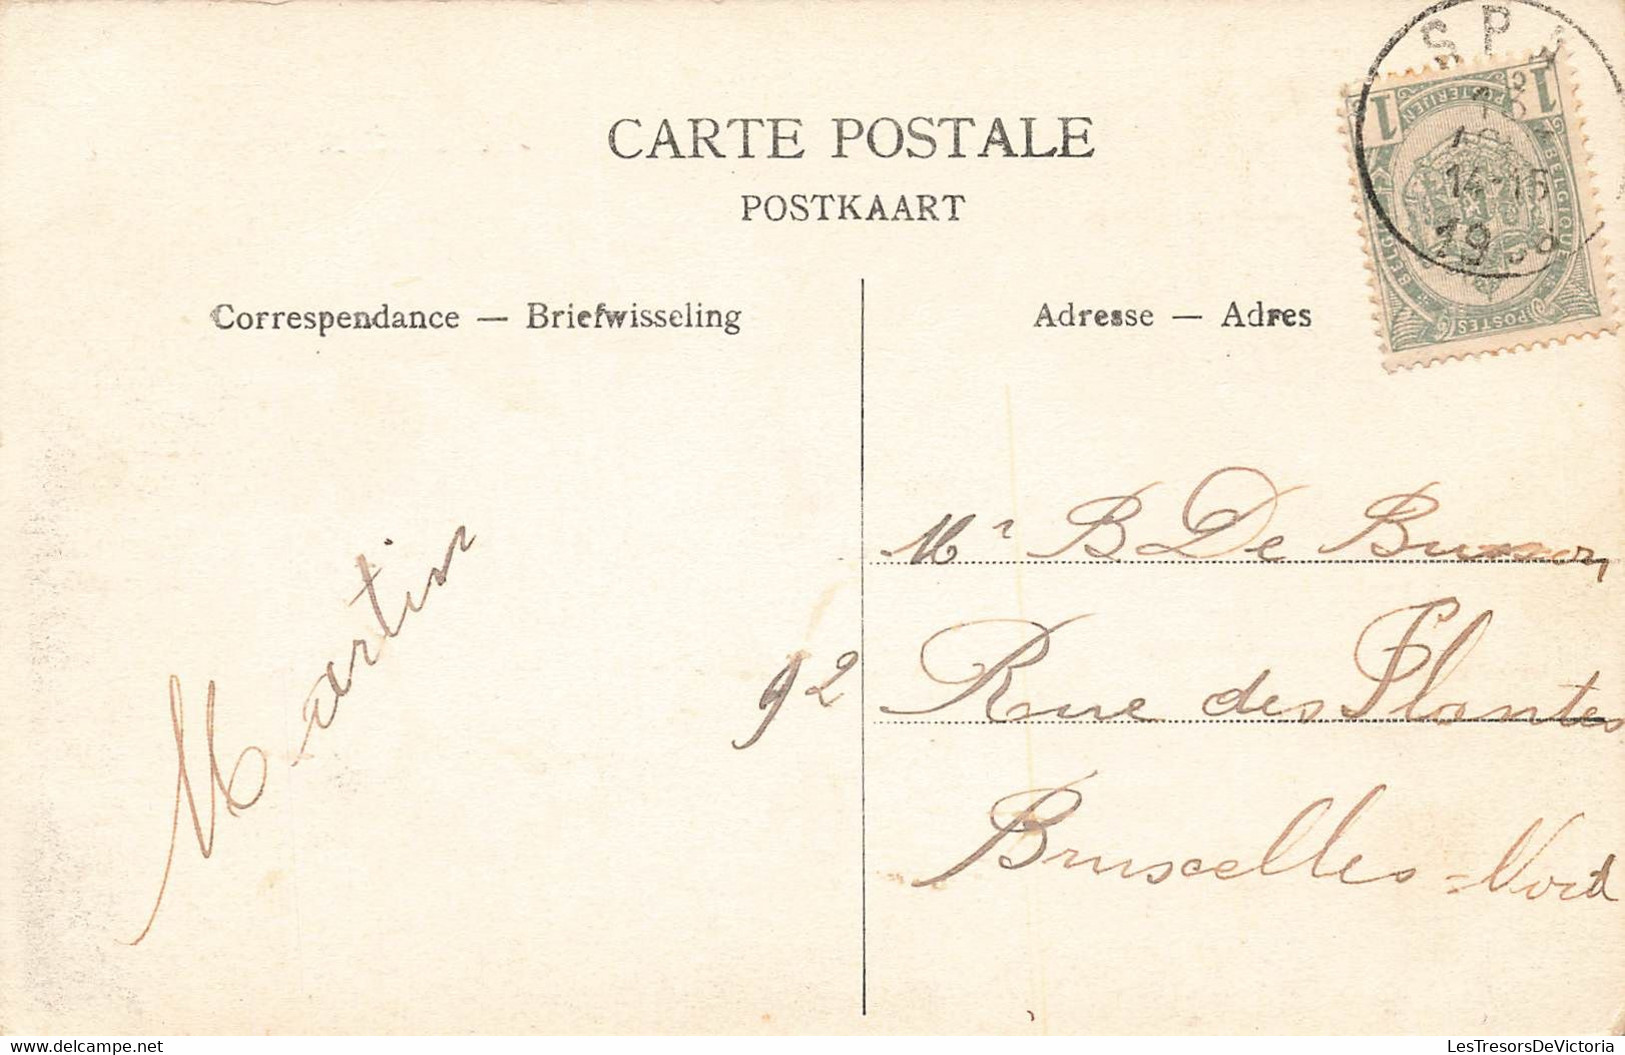 CARTE POSTALE
POSTKAART
Correspendance — Briefwisseling
Adresse — Adres
SPA
14-15
19
1 1
POSTERIJEN
BELGIQUE
BELGIE
POSTES
Martin
Mr B De
92 Rue des Plantes
Bruxelles = Nord
LesTresorsDeVictoria
LesTresorsDeVictoria.com